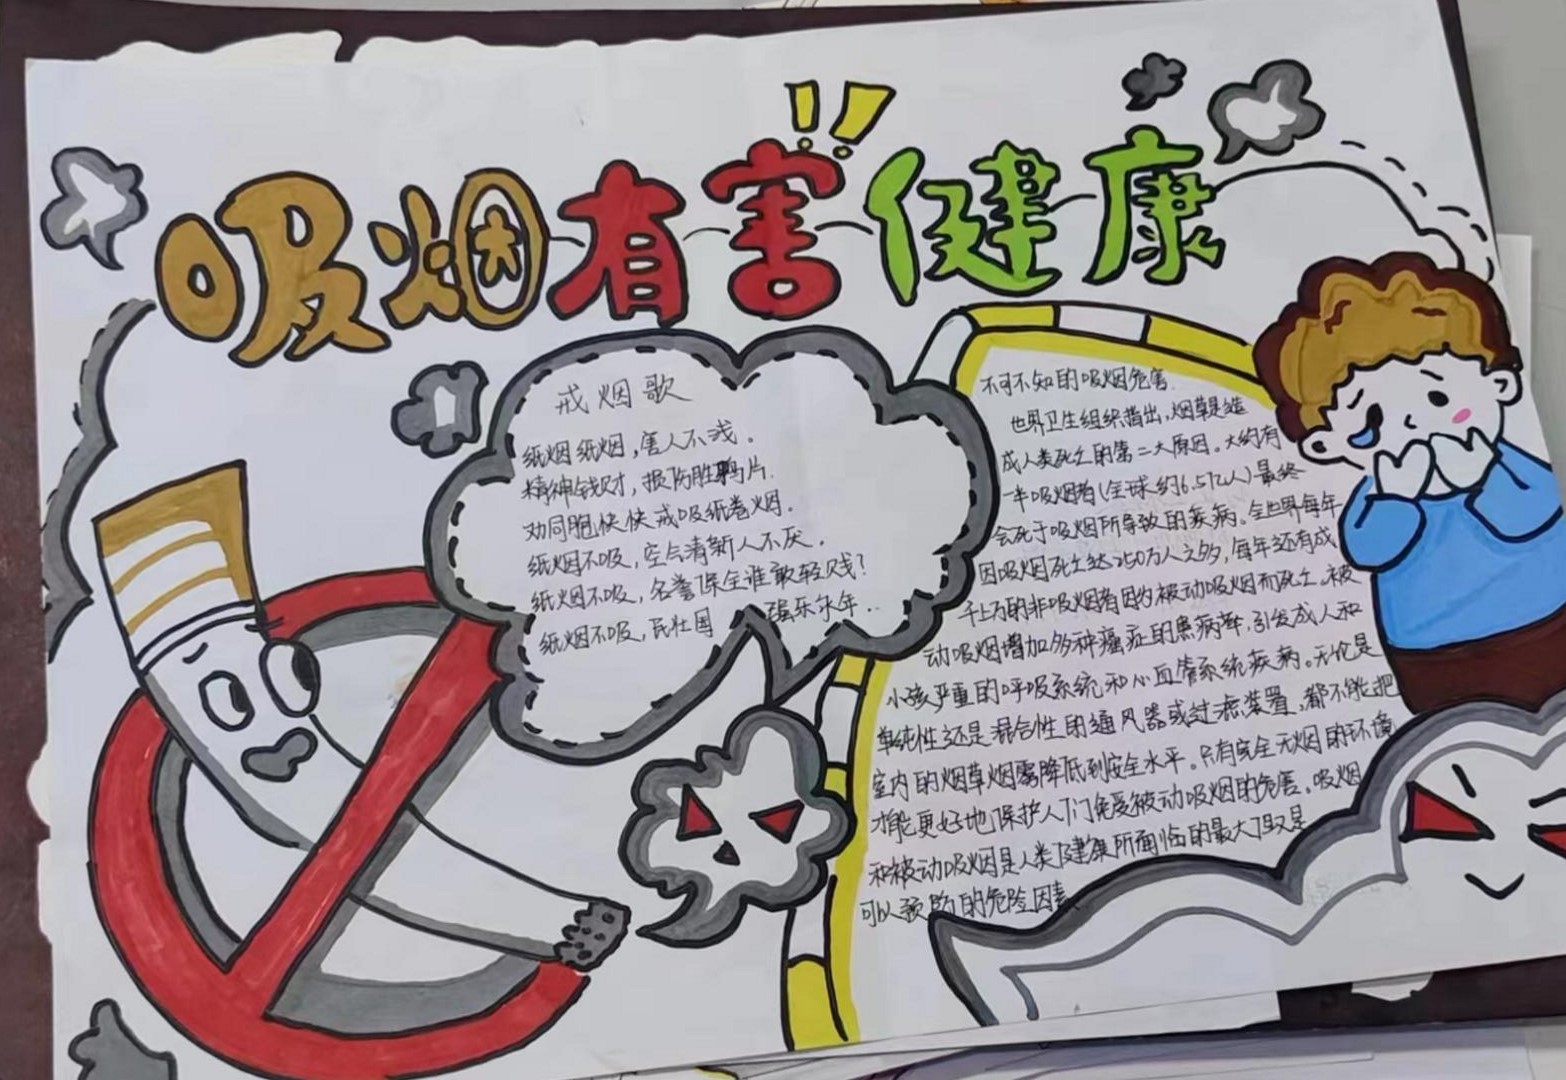 吸烟有害健康!!
戒烟歌
纸烟纸烟，害人不浅。
精神钱财，损伤胜鸦片.
劝同胞快快戒吸纸卷烟.
纸烟不吸，空气清新人不厌.
纸烟不吸，名誉保全谁敢轻贱？
纸烟不吸，民壮国强乐永年..
不可不知的吸烟危害.
世界卫生组织指出，烟草是造
成人类死亡的第二大原因。大约有
一半吸烟者(全球约6.5亿人)最终
会死于吸烟所导致的疾病。全世界每年
因吸烟死亡达250万人之多，每年还有成
千上万的非吸烟者因为被动吸烟而死亡.被
动吸烟增加多种癌症的患病率，引发成人和
小孩严重的呼吸系统和心血管系统疾病。无论是
单纯性还是混合性的通风器或过滤装置，都不能把
室内的烟草烟雾降低到安全水平。只有完全无烟的环境
才能更好地保护人们免受被动吸烟的危害。吸烟
和被动吸烟是人类健康所面临的最大但又是
可以预防的危险因素